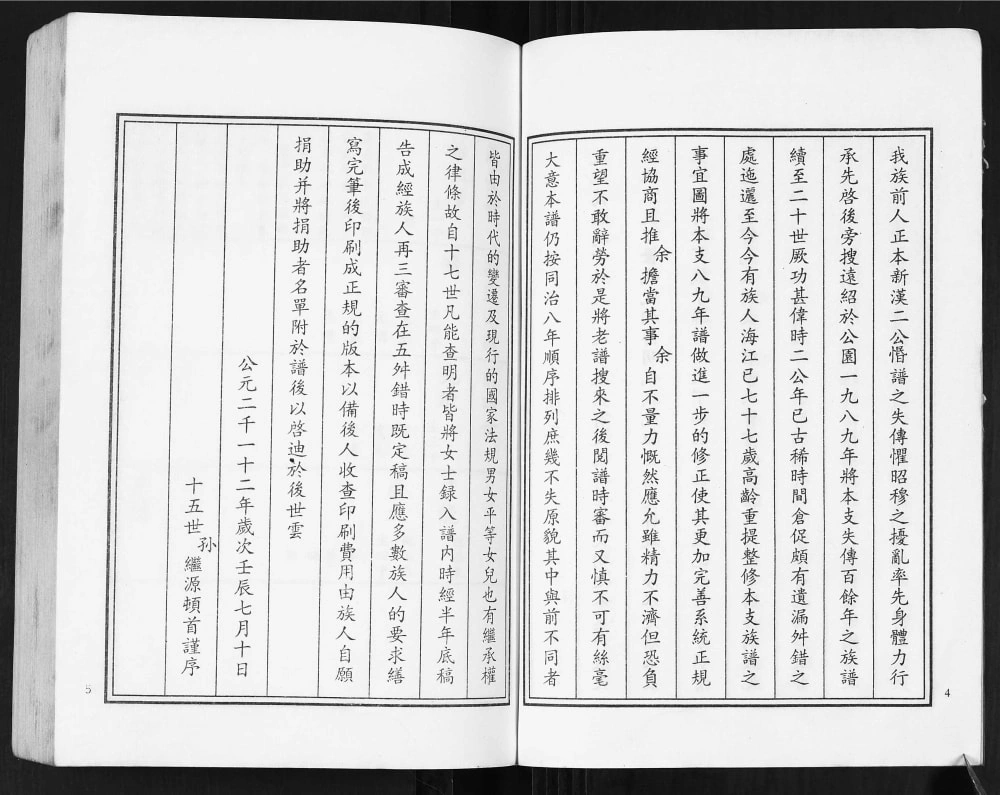 我族前人正本新漢二公惛譜之失傳懼昭穆之擾亂率先身體力行
承先啓後旁搜遠紹於公園一九八九年將本支失傳百餘年之族譜
續至二十世厥功甚偉時二公年已古稀時間倉促頗有遺漏舛錯之
處迤邐至今今有族人海江已七十七歲高齡重提整修本支族譜之
事宜圖將本支八九年譜做進一步的修正使其更加完善系統正規
經協商且推余擔當其事余自不量力慨然應允雖精力不濟但恐負
重望不敢辭勞於是將老譜搜來之後閱譜時審而又慎不可有絲毫
大意本譜仍按同治八年順序排列庶幾不失原貌其中與前不同者
4
皆由於時代的變遷及現行的國家法規男女平等女兒也有繼承權
之律條故自十七世凡能查明者皆將女士録入譜内時經半年底稿
告成經族人再三審查在五舛錯時既定稿且應多數族人的要求繕
寫完筆後印刷成正規的版本以備後人收查印刷費用由族人自願
捐助并將捐助者名單附於譜後以啓迪於後世雲
公元二千一十二年歲次壬辰七月十日
十五世孙繼源頓首謹序
5